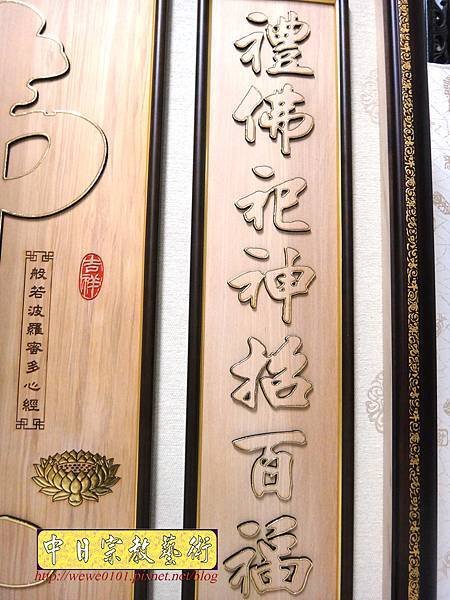 禮佛祀神招百福
吉祥
般若波羅蜜多心經
中日宗教藝術
http://wewe0101.pixnet.net/blog